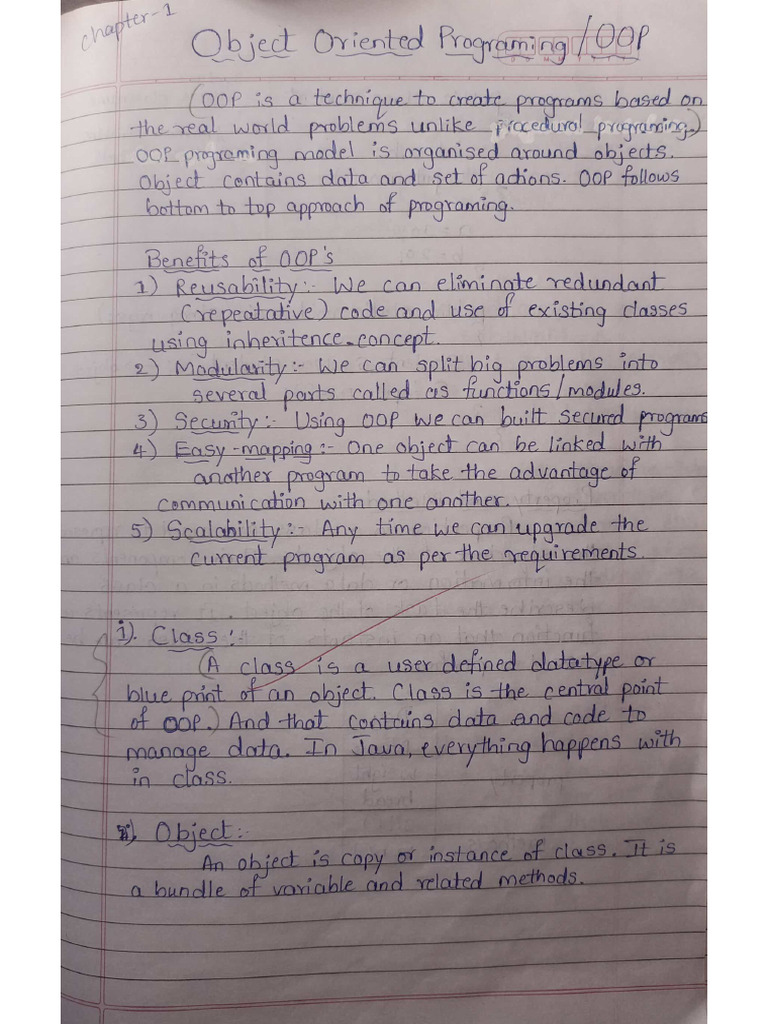 chapter-1
Object Oriented Programing/OOP
(OOP is a technique to create programs based on
the real world problems unlike procedural programing.)
OOP programing model is organised around objects.
Object contains data and set of actions. OOP follows
bottom to top approach of programing.
Benefits of OOP's
1) Reusability:- We can eliminate redundant
(repeatative) code and use of existing classes
using inheritence concept.
2) Modularity:- We can split big problems into
several parts called as functions/modules.
3) Security:- Using OOP we can built secured programs
4) Easy-mapping:- One object can be linked with
another program to take the advantage of
communication with one another.
5) Scalability:- Any time we can upgrade the
current program as per the requirements.
i). Class:-
(A class is a user defined datatype or
blue print of an object. Class is the central point
of OOP.) And that contains data and code to
manage data. In Java, everything happens with
in class.
ii) Object:-
An object is copy or instance of class. It is
a bundle of variable and related methods.